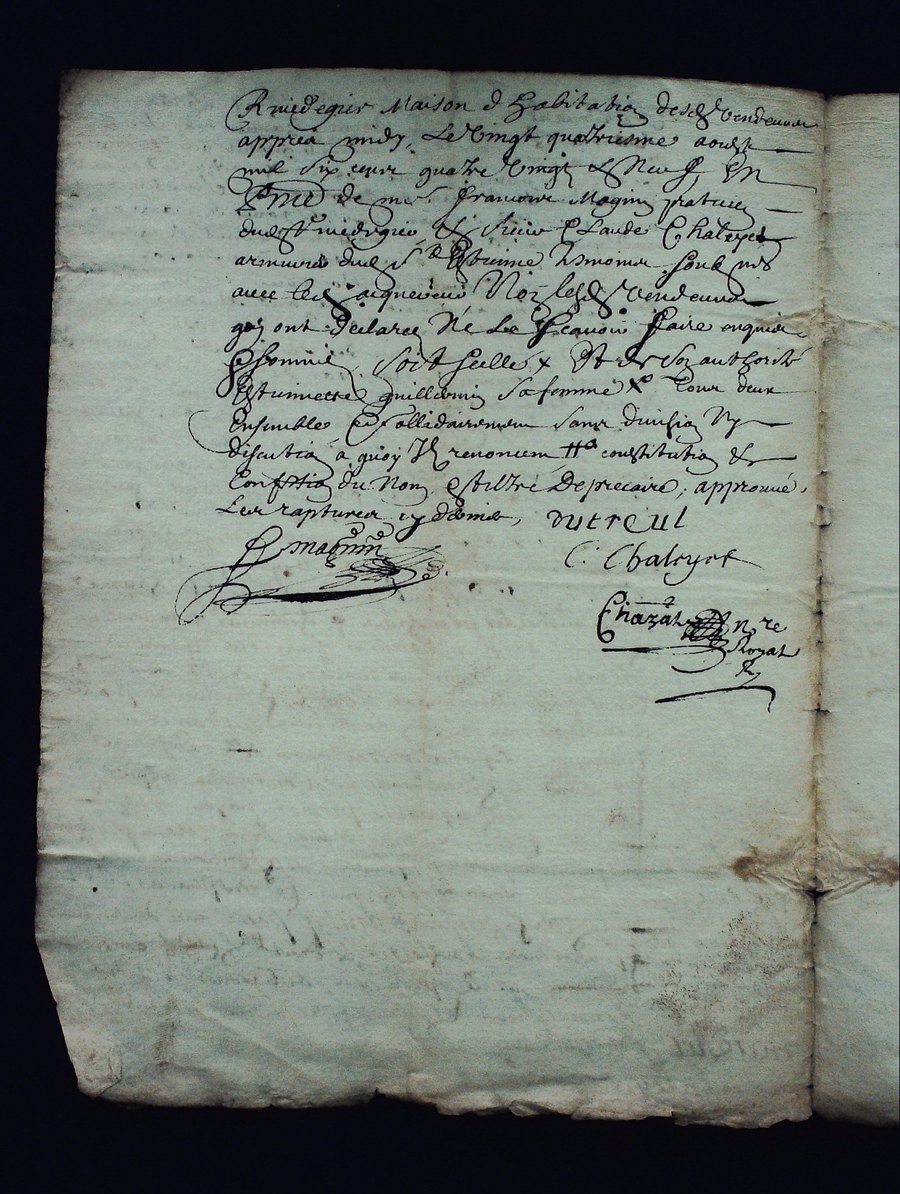 Maison d'habitation desd vendeurs
appres midy, Le Vingt quatriesme aoust
mil six cent quatre Vingt & Neuf, En
de francois Magnin praticien
& Sieur Claude Chaleyet
armurier dud St Estienne soubsnés
avec led acquereur Non lesd vendeurs
quy ont declaré Né Le scavoir faire enquis
& sommés, soit seelle, Et de son authorité
Estiennette guillermin sa femme tous deux
Ensemble & sollidairement sans division Ny
discution a quoy Ils renoncent constitution de
Constitution du Nom & tiltre De precaire, approuvé
Les raptures
dutreul
magnin
C. Chaleyet
Chazal Nre
Royal